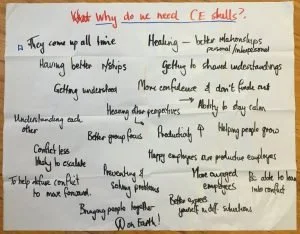 What Why do we need CE skills?
They come up all time
Healing – better relationships
personal/interpersonal
Having better r/ships
Getting to shared understandings
Getting understood
More confidence & don't freak out
Hearing other perspectives → Ability to stay calm
Understanding each
other
Better group focus
Productivity ⇑
Helping people grow
Conflict less
likely to escalate
Happy employees are productive employees
Preventing &
solving problems
More engaged
employees
Be able to lean
into conflict
To help defuse conflict
to move forward.
Better express
yourself in diff. situations
Bringing people together
on Earth!